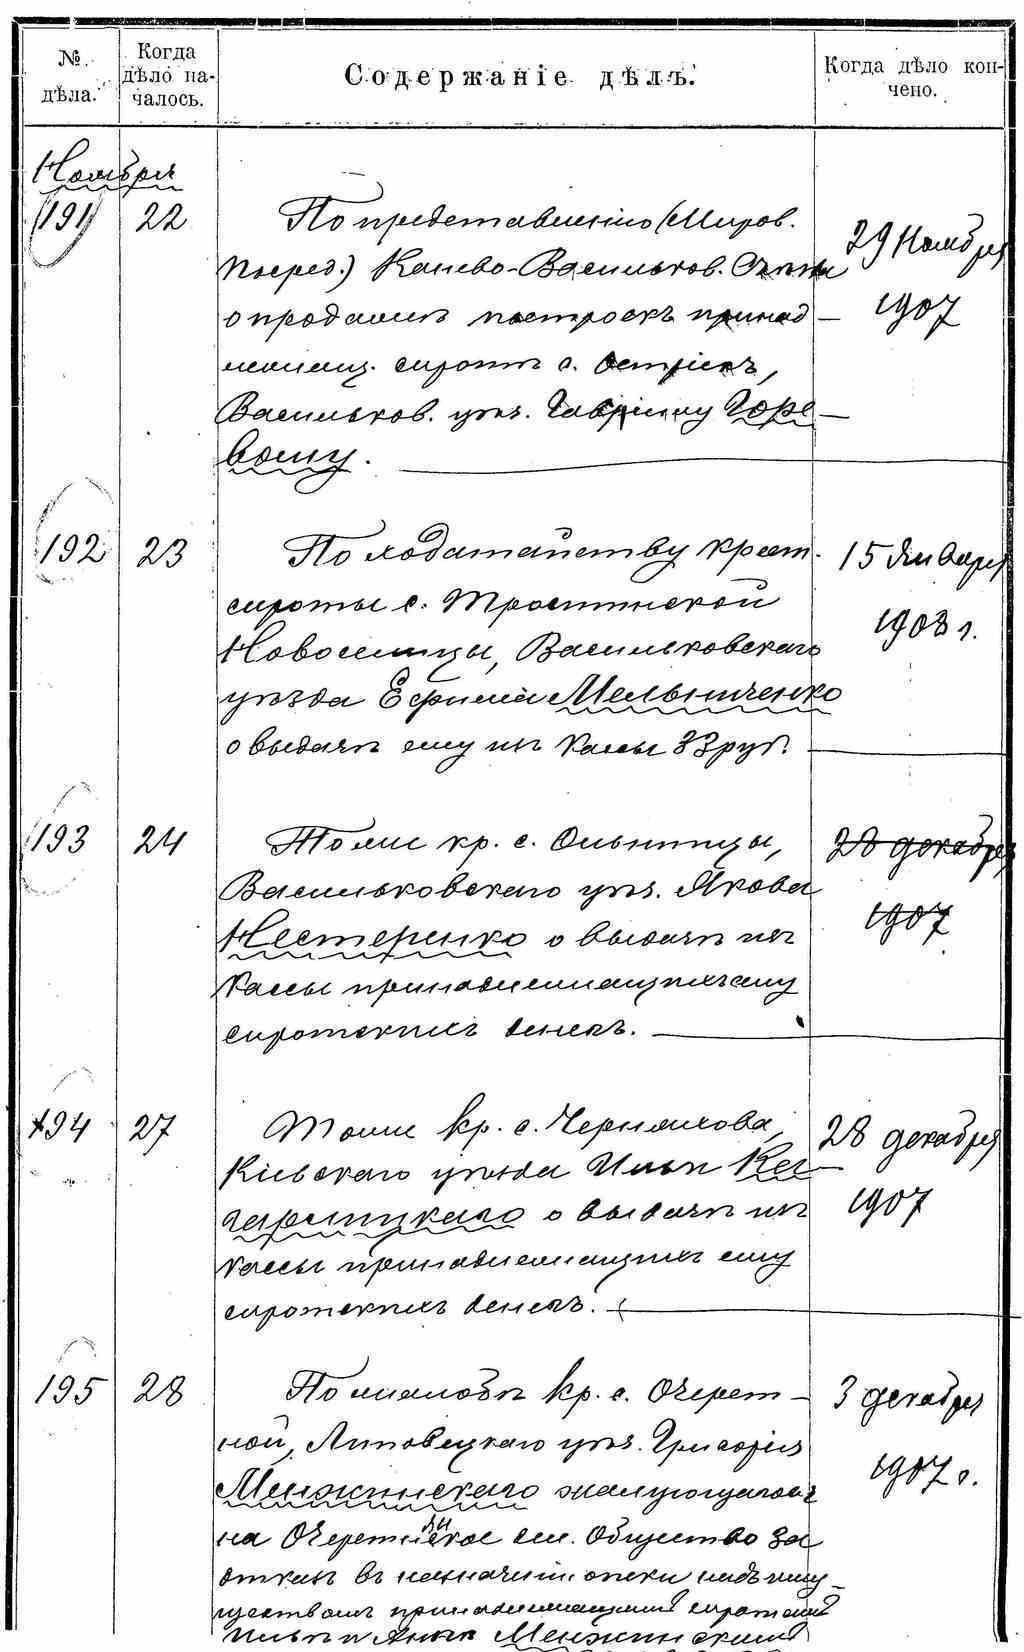 № дѣла.
Когда дѣло на-
чалось.
Содержаніе дѣлъ.
Когда дѣло кон-
чено.
Ноября
191 22 По представленію (Миров.
Посред.) Каново-Васильков. Съѣзда
о продажѣ построекъ принад-
лежащ. сиротѣ с. Острiекъ,
Васильков. уѣз. Гаврiилу Горе-
вому.
29 Ноября
1907
192 23 По ходатайству крест.
сироты с. Тростинской
Новоселицы, Васильковскаго
уѣзда Ефима Мельниченко
о выдачѣ ему изъ кассы 33 руб.
15 Января
1908 г.
193 24 Тоже кр. с. Ольшаницы,
Васильковскаго уѣз. Якова
Нестеренко о выдачѣ изъ
кассы принадлежащихъ ему
сиротскихъ денегъ.
28 декабря
1907
194 27 Тоже кр. с. Черняхова,
Кіевскаго уѣзда Ильи
о выдачѣ изъ
кассы принадлежащихъ ему
сиротскихъ денегъ.
28 декабря
1907
195 28 По жалобѣ кр. с. Очерет-
ной, Липовецкаго уѣз. Григорія
Менжинскаго жалующагося
на Очеретнянское сел. Общество за
отказъ въ назначеніи опеки надъ иму-
ществомъ принадлежащимъ сиротамъ
Менжинскимъ
3 декабря
1907 г.